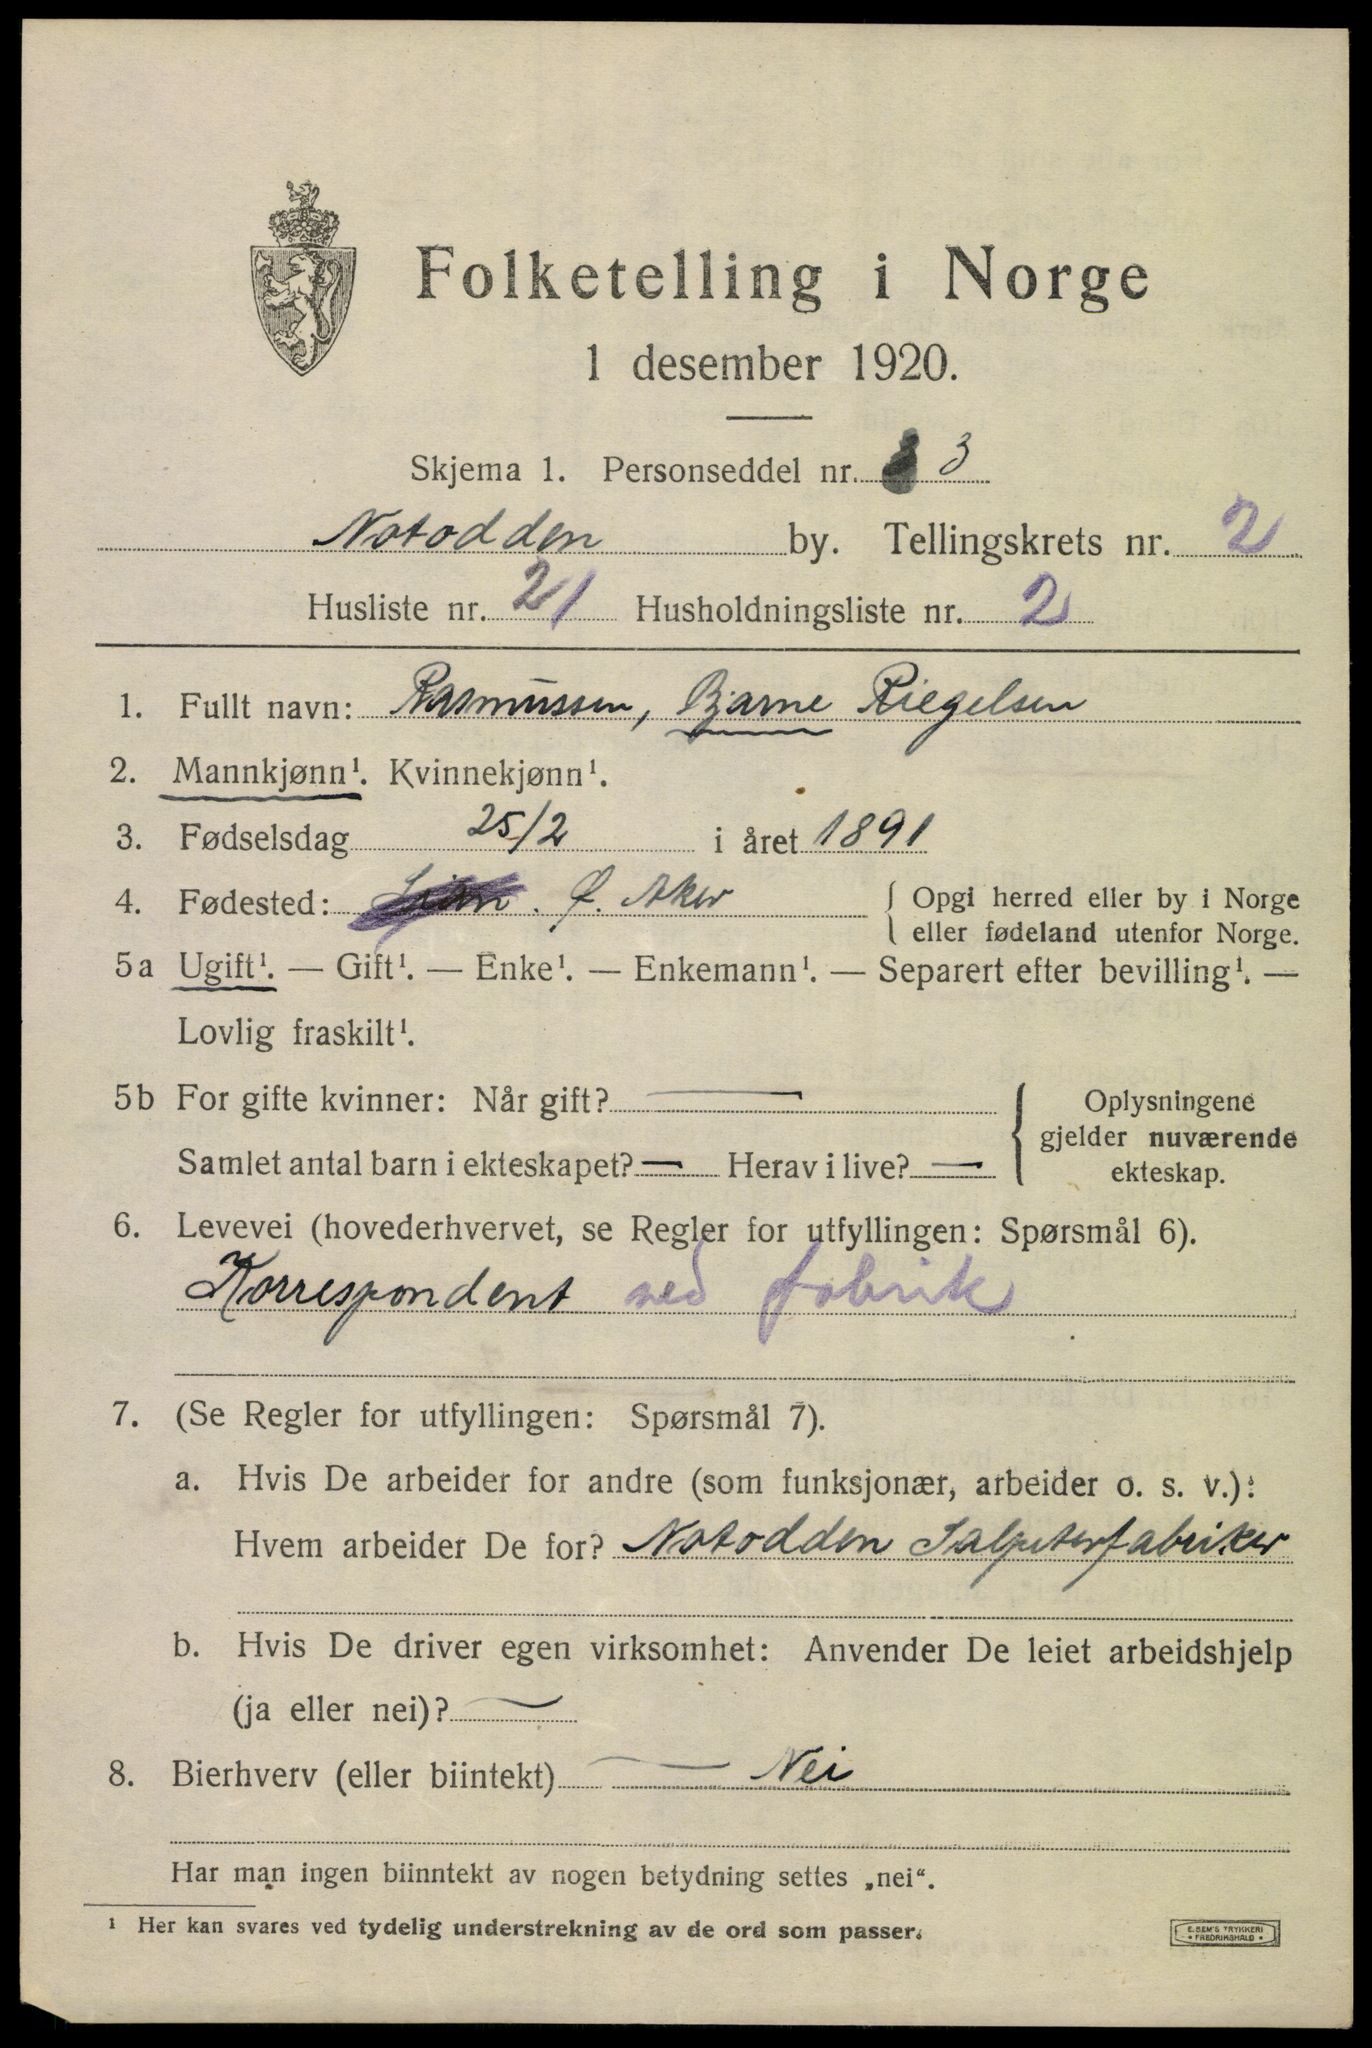 Folketelling i Norge
1 desember 1920.
Skjema 1. Personseddel nr. 3
Notodden by. Tellingskrets nr. 2
Husliste nr. 21 Husholdningsliste nr. 2
1. Fullt navn: Rasmussen, Bjarne Riegelsen
2. Mannkjønn¹. Kvinnekjønn¹.
3. Fødselsdag 25/2 i året 1891
4. Fødested: Ø. Aker { Opgi herred eller by i Norge
eller fødeland utenfor Norge.
5a Ugift¹. — Gift¹. — Enke¹. — Enkemann¹. — Separert efter bevilling¹. —
Lovlig fraskilt¹.
5b For gifte kvinner: Når gift? —
Samlet antal barn i ekteskapet? — Herav i live? —
Oplysningene
gjelder nuværende
ekteskap.
6. Levevei (hovederhvervet, se Regler for utfyllingen: Spørsmål 6).
Korrespondent ved fabrik
7. (Se Regler for utfyllingen: Spørsmål 7).
a. Hvis De arbeider for andre (som funksjonær, arbeider o. s. v.):
Hvem arbeider De for? Notodden Salpeterfabriker
b. Hvis De driver egen virksomhet: Anvender De leiet arbeidshjelp
(ja eller nei)? —
8. Bierhverv (eller biintekt) — Nei
Har man ingen biinntekt av nogen betydning settes „nei“.
¹ Her kan svares ved tydelig understrekning av de ord som passer.
E. SEM'S TRYKKERI
• FREDRIKSHALD •